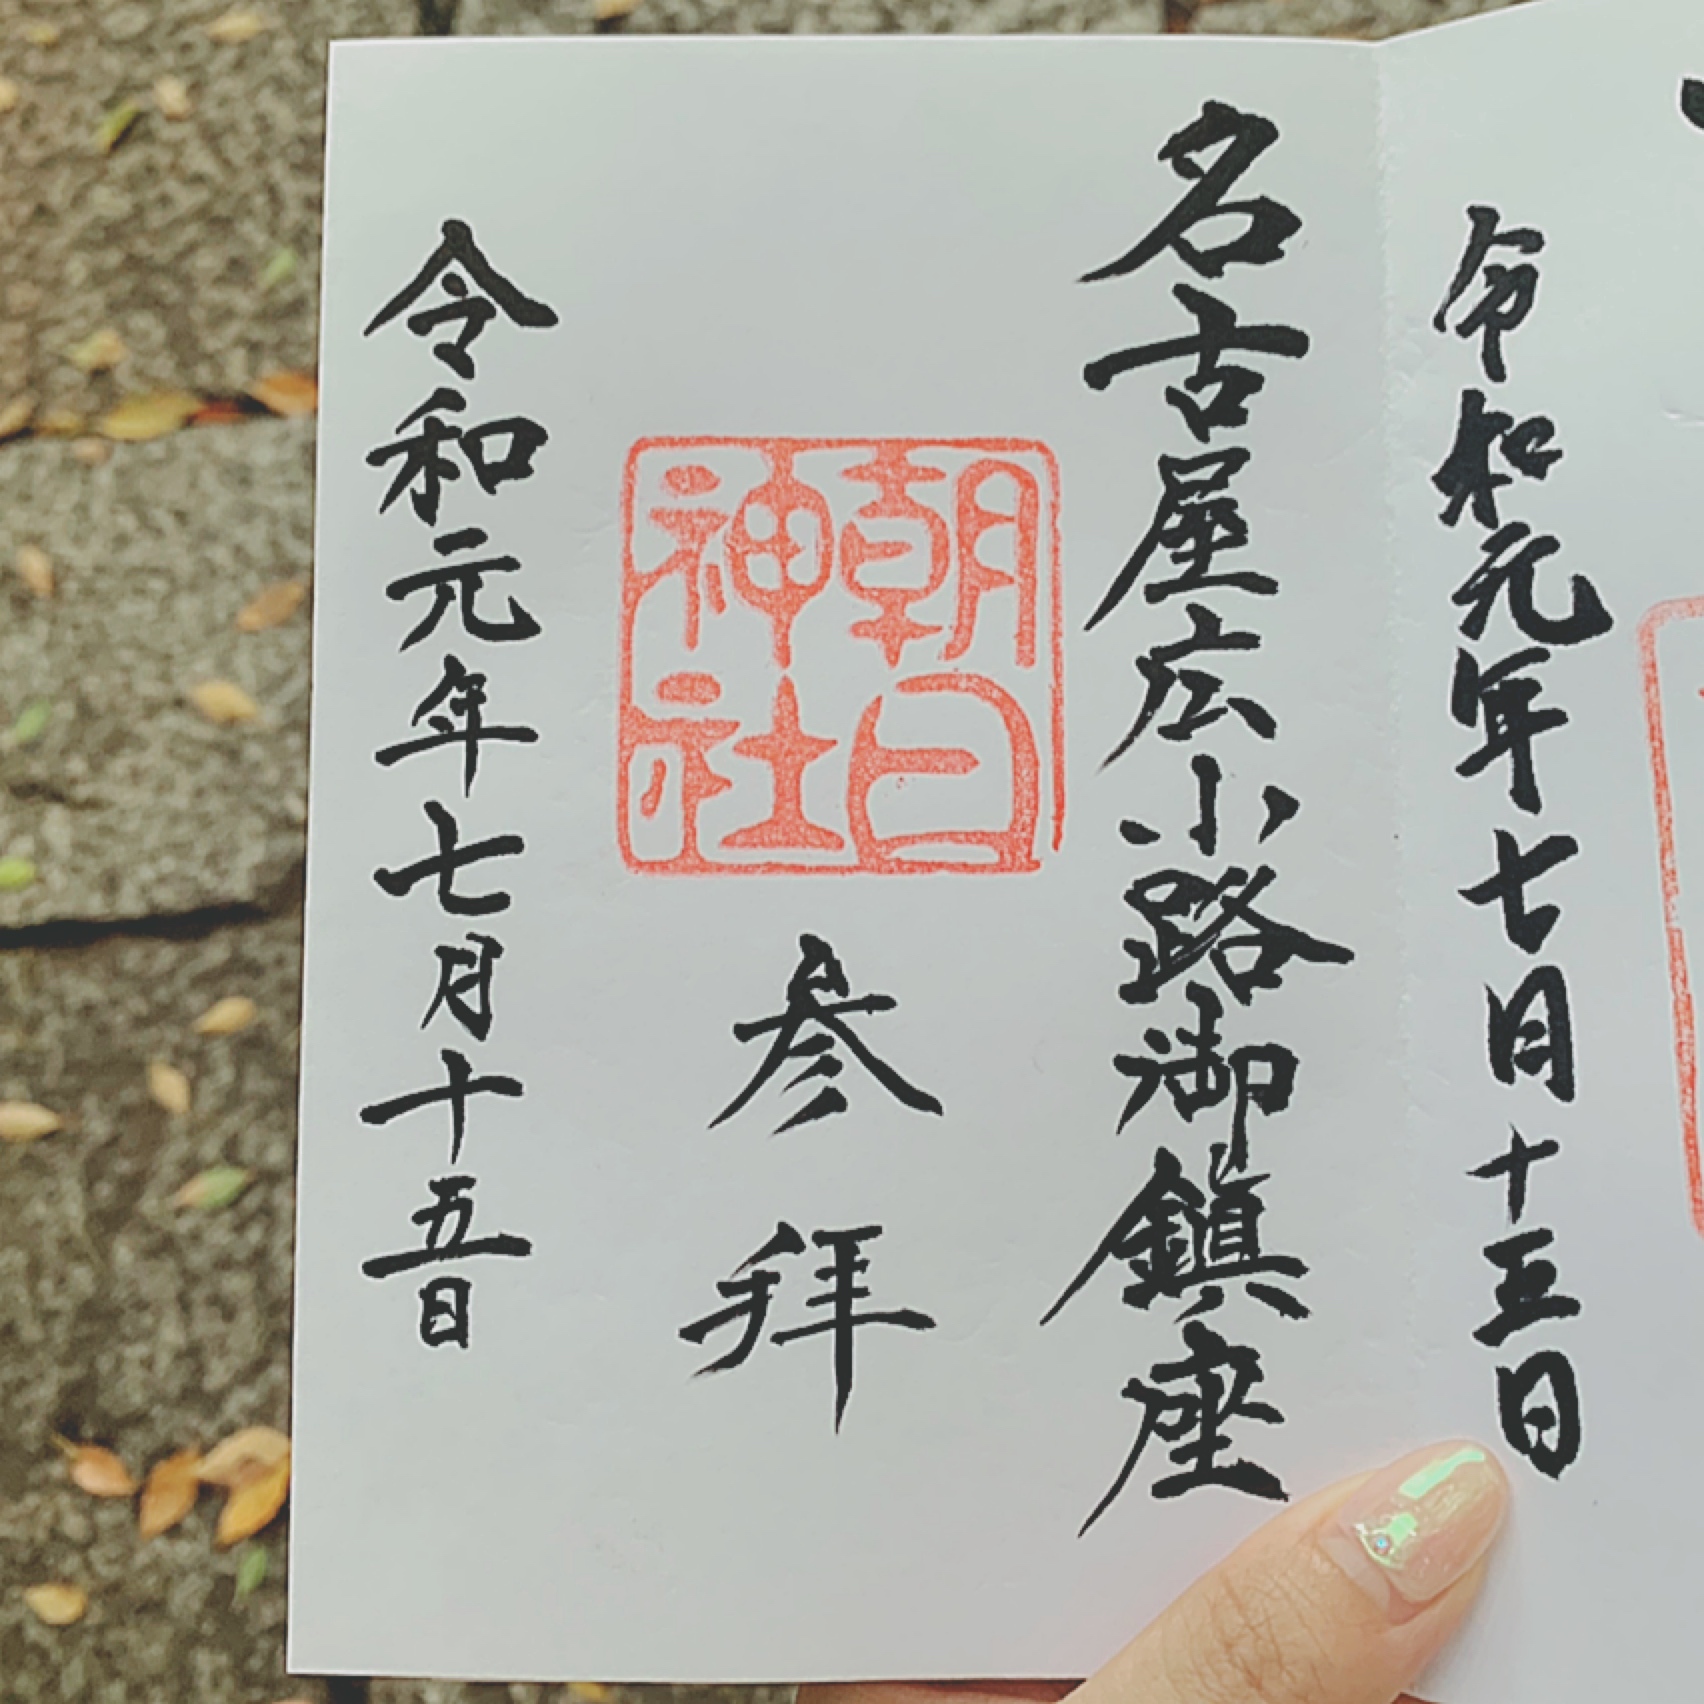 令和元年七月十五日
名古屋広小路御鎮座
朝日神社
参拝
令和元年七月十五日